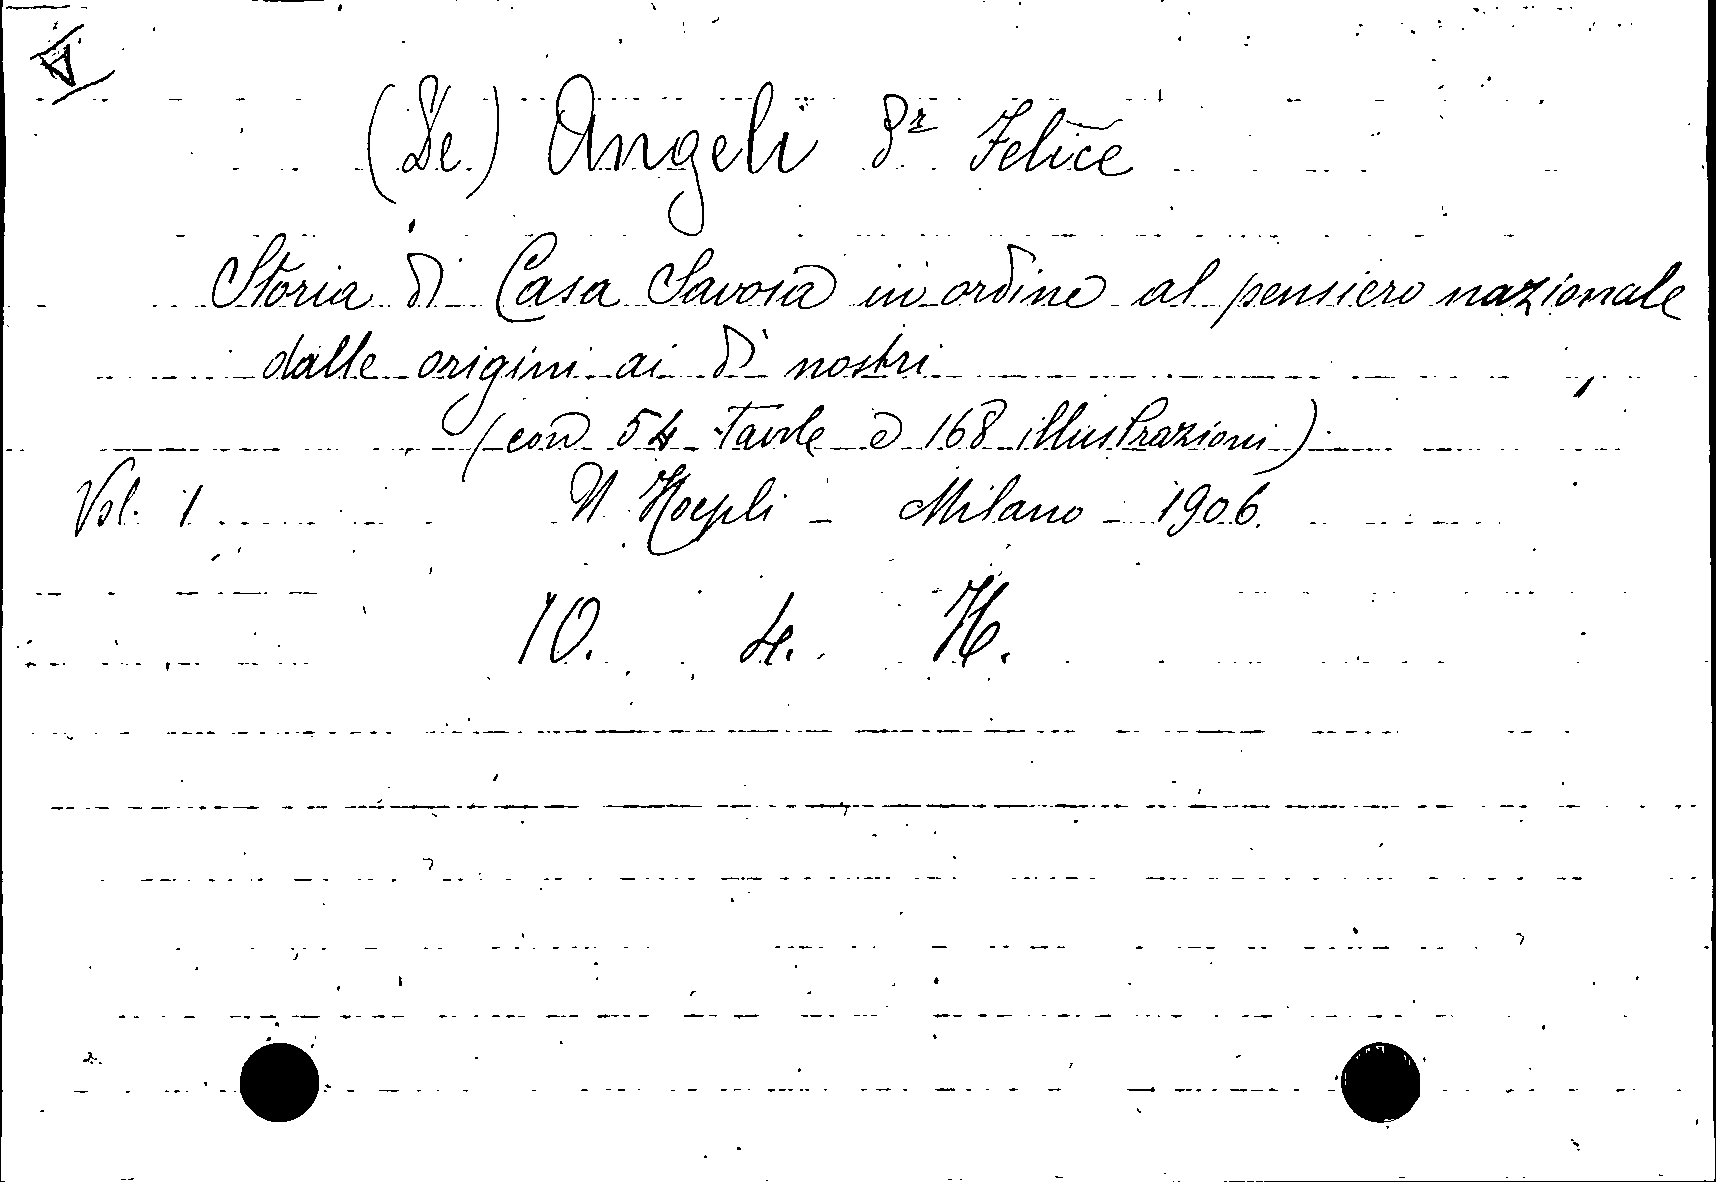 A
(De) Angeli Dr Felice
Storia di Casa Savoia in ordine al pensiero nazionale
dalle origini ai dì nostri
(con 54 tavole e 168 illustrazioni)
Vol. 1 U Hoepli - Milano - 1906.
10. 4. H.